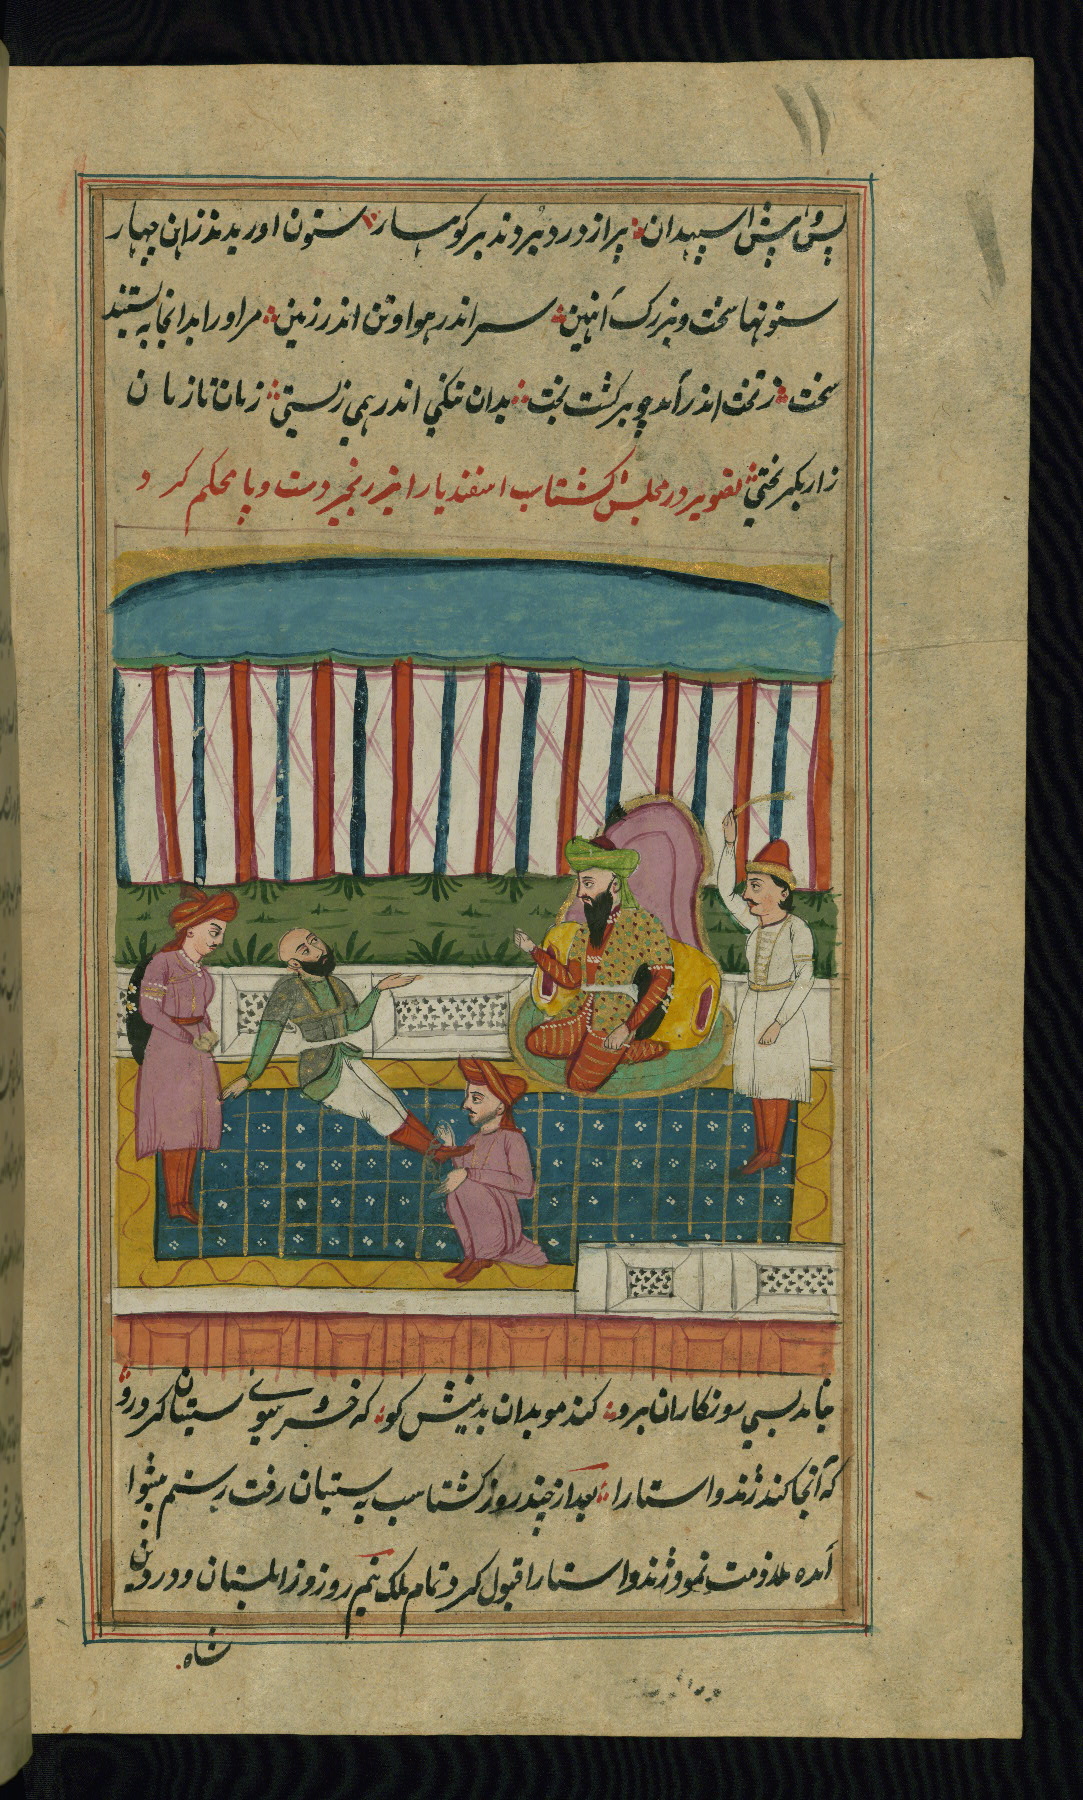 پس و پیش اسپهبدان پر از درد بردند بر کوهسار ستون اوریدند زاهن چهار
ستونها سخت و بزرک آهنین سر اندر هوا و تن اندر زمین مر او را بدانجا به بستند
سخت ز تخت اندر آمد چو برکشت بخت بدان تنکی اندر همی زیستی زمان تا زمان
زار بکریختی تصویر در مجلس کشتاسب اسفندیار را بزنجیر دست و پا محکم کرد
بسی روزکاران برو کند موبدان بدینش کو که خسرو سوی سیستان کرد رو
که آنجا کند زند و استا را بعد از چند روز کشتاسب به سیستان رفت رستم پیشوا
آمده ملازمت نمود و زند و استا را قبول کرد و تمام ملک نیمروز و زابلستان و در دین
شاه